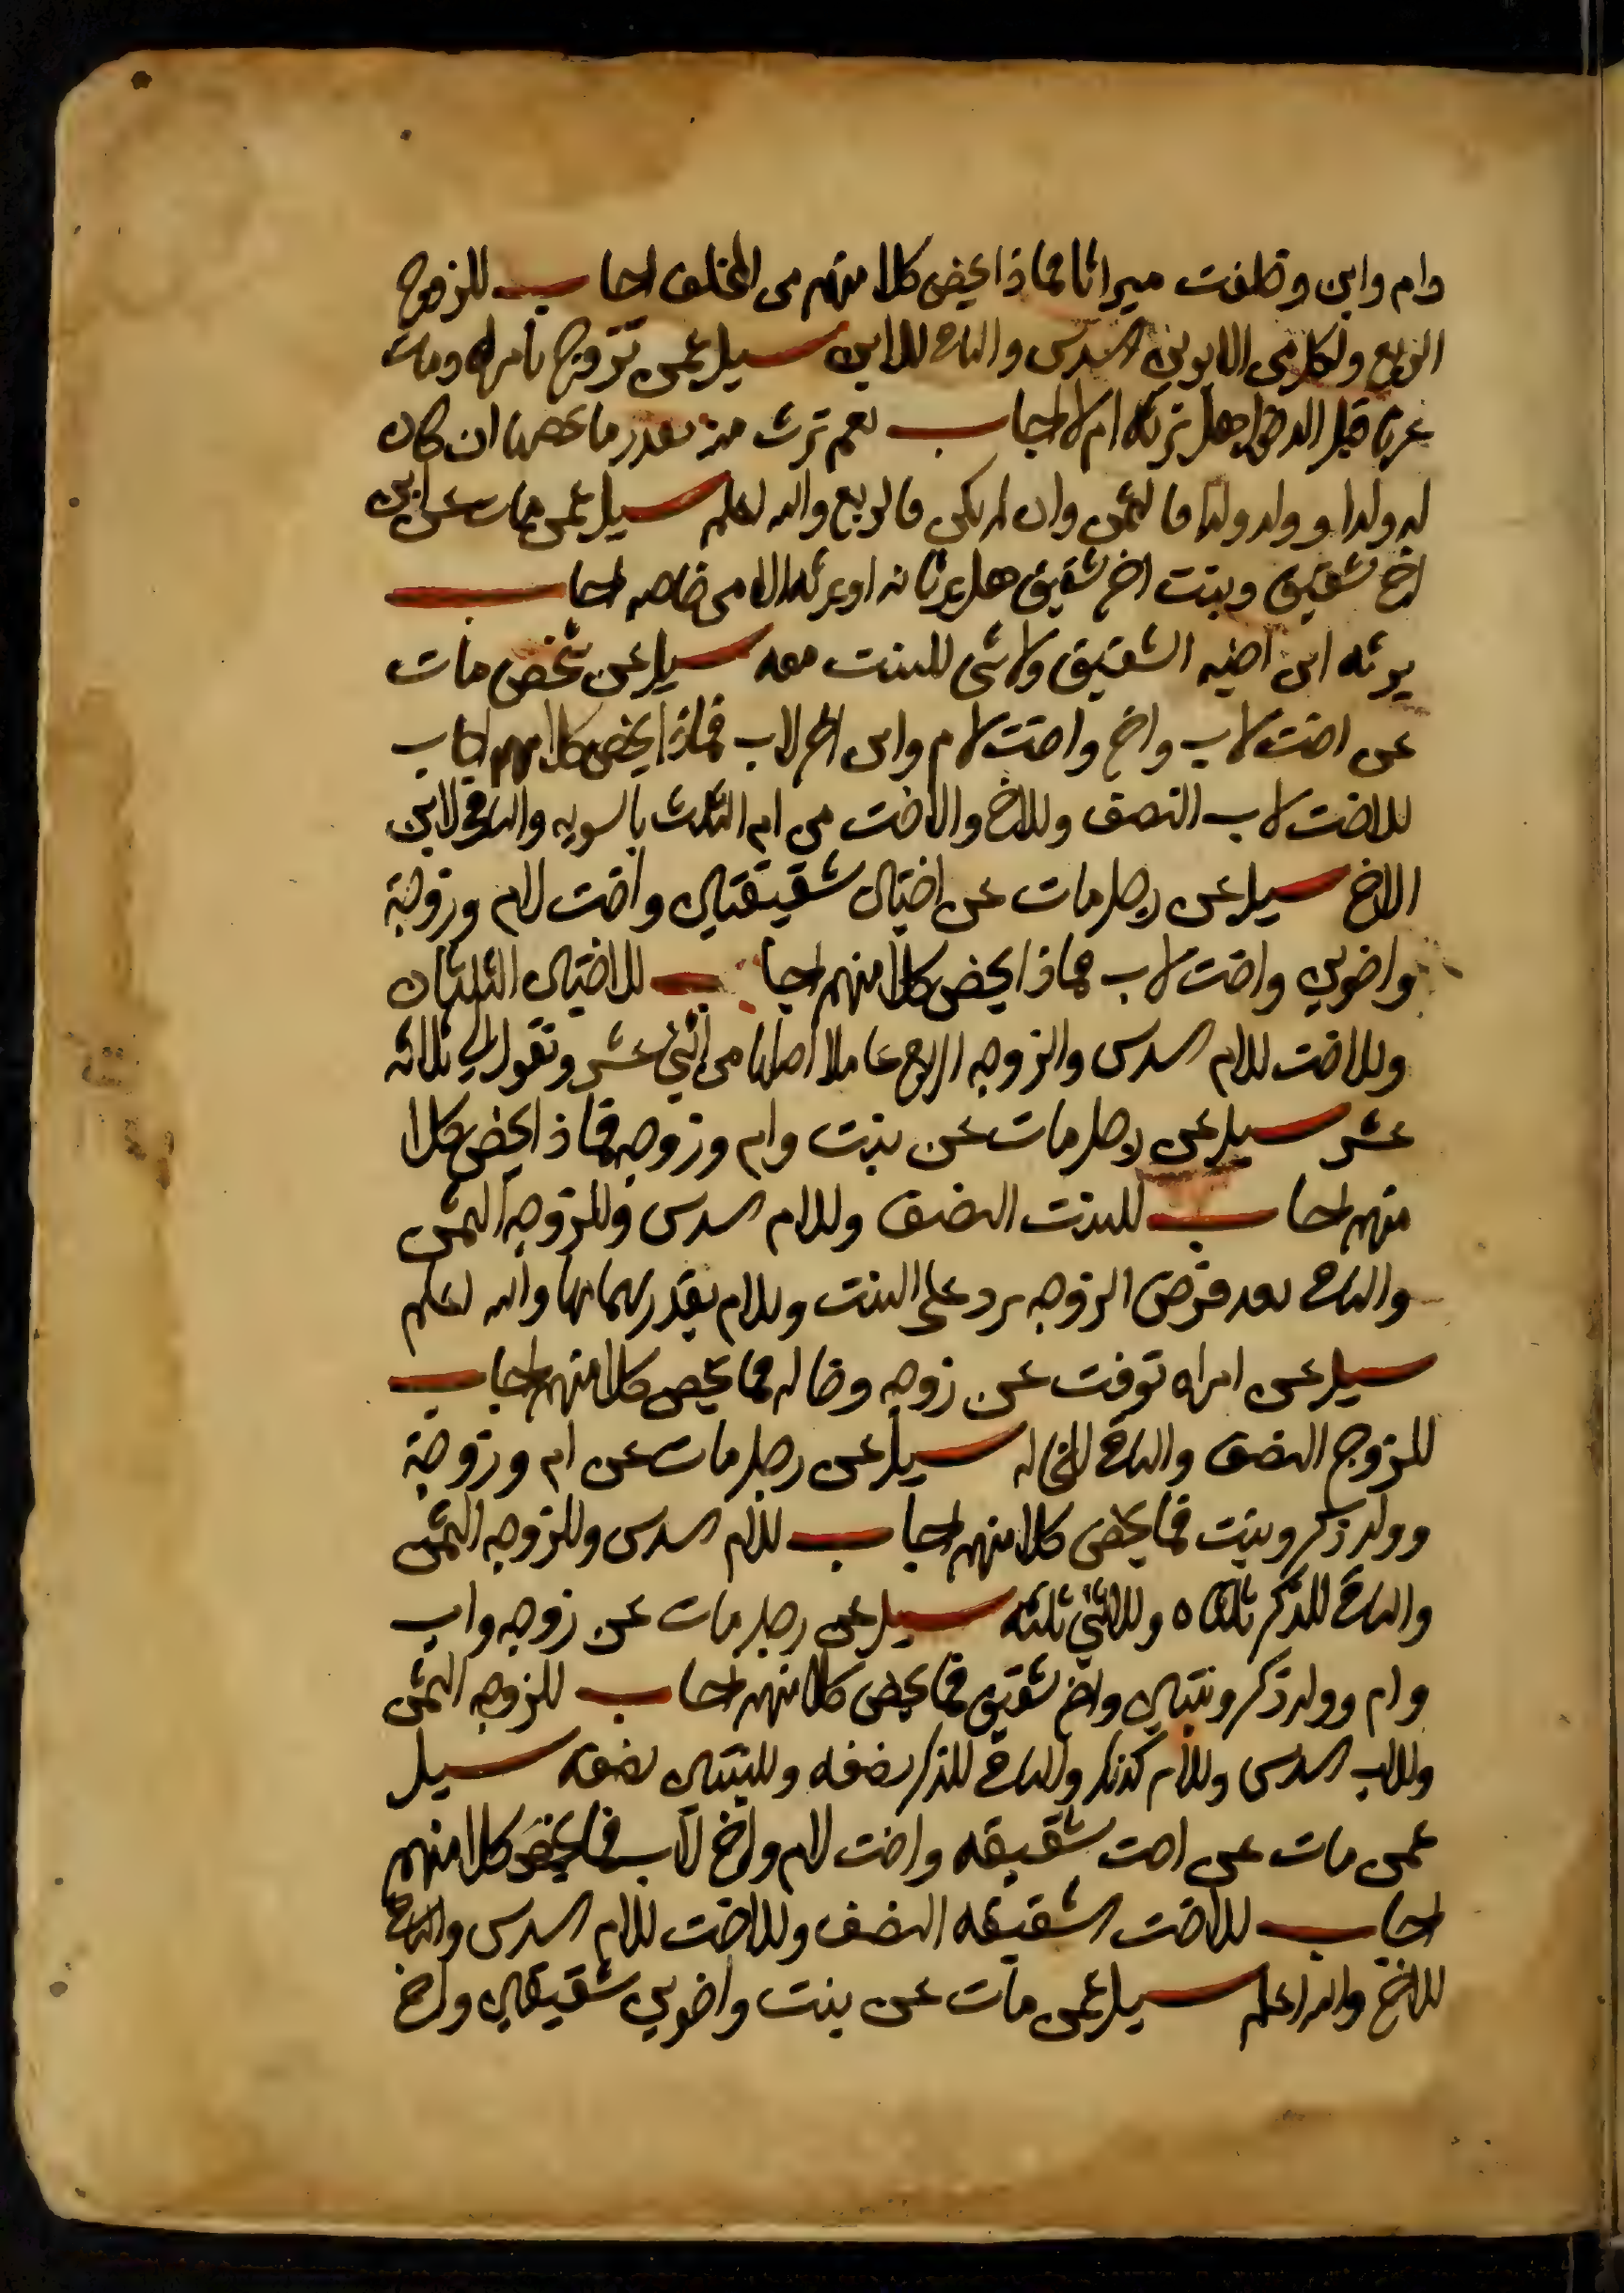 وام وابن وخلفت ميراثا فماذا يخص كلا منهم من المخلف اجاب للزوج
الربع ولكل من الابوين السدس والباقي للابن سيل عمن تزوج بامراه ومات
عنها قبل الدخول هل ترثه ام لا اجاب نعم ترث منه بقدر ما يخصها ان كان
له ولدا وولد ولد فالثمن وان لم يكن فالربع والله اعلم سيل عمن مات عن ابن
اخ شقيق وبنت اخ شقيق هل يرثانه او يرثه الابن خاصه اجاب
يرثه ابن اخيه الشقيق ولا شي للبنت معه سيل عن شخص مات
عن اخت لاب واخ واخت لام وابن اخ لاب فماذا يخص كلا منهم اجاب
للاخت لاب النصف وللاخ والاخت من ام الثلث بالسويه والباقي لابن
الاخ سيل عن رجل مات عن اختين شقيقتين واخت لام وزوجة
واخوين واخت لاب فماذا يخص كلا منهم اجاب للاختين الثلثان
وللاخت للام السدس والزوجه الربع عاملا اصلها من اثني عشر وتعول الي ثلاثه
عشر سيل عن رجل مات عن بنت وام وزوجه فماذا يخص كلا
منهم اجاب للبنت النصف وللام السدس وللزوجه الثمن
والباقي بعد فرض الزوجه يرد علي البنت وللام بقدر سهامها والله اعلم
سيل عن امراه توفت عن زوجه وخاله فما يخص كلا منهم اجاب
للزوج النصف والباقي للخاله سيل عن رجل مات عن ام وزوجة
وولد ذكر وبنت فما يخص كلا منهم اجاب للام السدس وللزوجه الثمن
والباقي للذكر ثلثاه وللانثي ثلثه سيل عن رجل مات عن زوجه واب
وام وولد ذكر وبنتين واخ شقيق فما يخص كلا منهم اجاب للزوجه الثمن
وللاب السدس وللام كذلك والباقي للذكر نصفه وللبنتين نصفه سيل
عمن مات عن اخت شقيقه واخت لام واخ لاب فما يخص كلا منهم
اجاب للاخت الشقيقه النصف وللاخت للام السدس والباقي
للاخ والله اعلم سيل عمن مات عن بنت واخوين شقيقين واخ